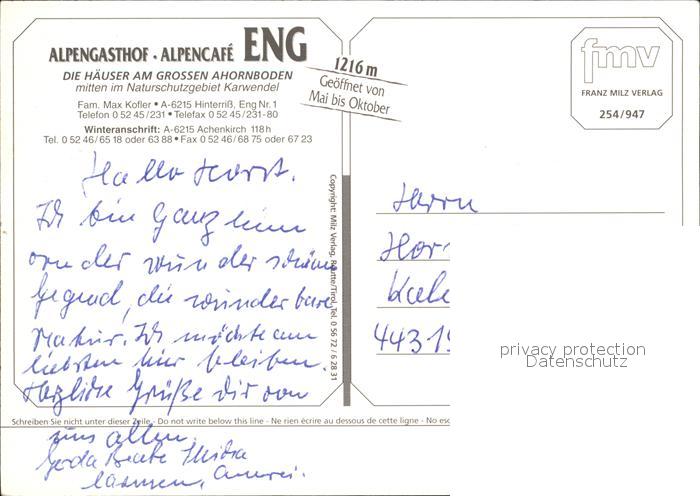 ALPENGASTHOF • ALPENCAFÉ ENG
DIE HÄUSER AM GROSSEN AHORNBODEN
mitten im Naturschutzgebiet Karwendel
Fam. Max Kofler • A-6215 Hinterriß, Eng Nr. 1
Telefon 0 52 45 / 231 • Telefax 0 52 45 / 231-80
Winteranschrift: A-6215 Achenkirch 118 h
Tel. 0 52 46 / 65 18 oder 63 88 • Fax 0 52 46 / 68 75 oder 67 23
1216 m
Geöffnet von
Mai bis Oktober
fmv
FRANZ MILZ VERLAG
254/947
Hallo Horst.
Ich bin Ganz hin
von der wunder schönen
Gegend, die wunderbare
Natur. Ich möchte am
liebsten hier bleiben.
Herzliche Grüße dir von
uns allen.
Gerda Beate
Copyright: Milz Verlag, Reutte/Tirol, Tel. 0 56 72 / 6 28 31
Herrn
Hor
Kale
44319
privacy protection
Datenschutz
Schreiben Sie nicht unter dieser Zeile - Do not write below this line - Ne rien écrire au dessous de cette ligne - No esc